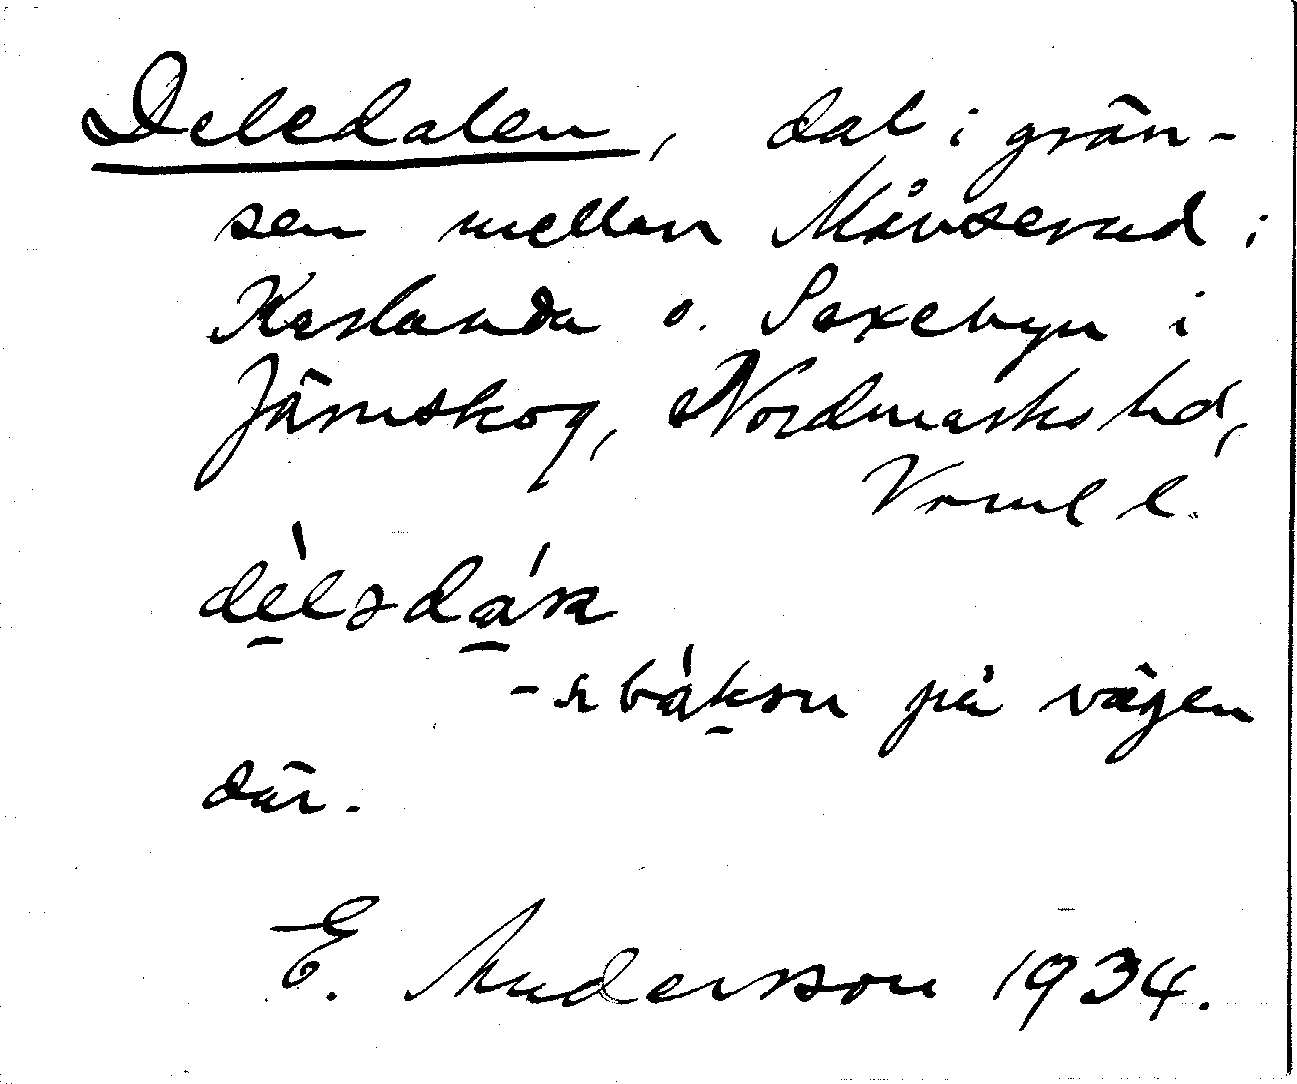 Deledalen, dal i grän-
sen mellan Månserud i
Karlanda o. Saxebyn i
Järnskog, Nordmarks hd,
Vrml l.
på vägen
där.
E. Andersson 1934.